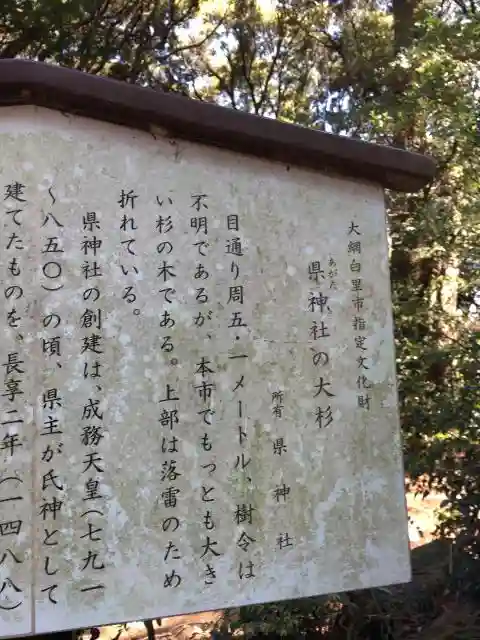 大網白里市指定文化財
あがた
県神社の大杉
所有 県神社
目通り周五・一メートル、樹令は
不明であるが、本市でもっとも大き
い杉の木である。上部は落雷のため
折れている。
県神社の創建は、成務天皇(七九一
〜八五〇)の頃、県主が氏神として
建てたものを、長享二年(一四八八)